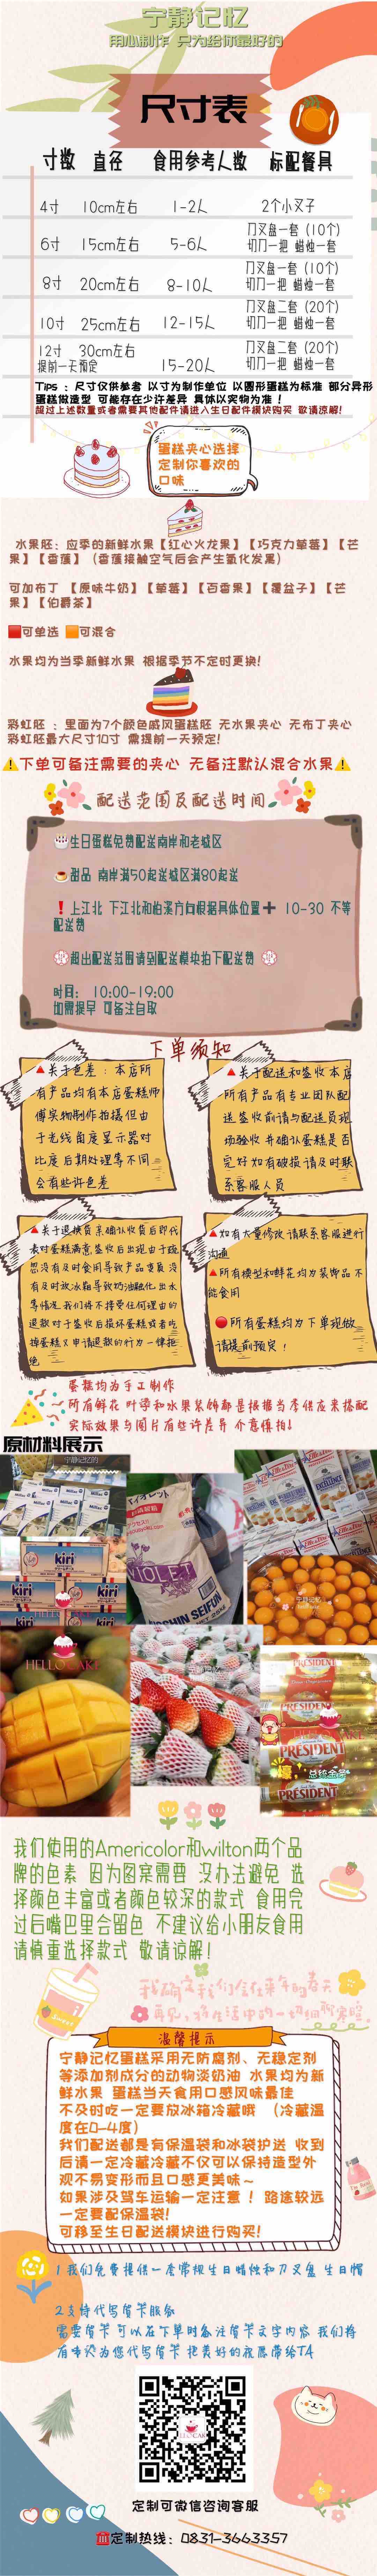 宁静记忆
用心制作 只为给你最好的
尺寸表
寸数 直径 食用参考人数 标配餐具
4寸 10cm左右 1-2人 2个小叉子
6寸 15cm左右 5-6人 刀叉盘一套(10个)
切刀一把 蜡烛一套
8寸 20cm左右 8-10人 刀叉盘一套(10个)
切刀一把 蜡烛一套
10寸 25cm左右 12-15人 刀叉盘二套(20个)
切刀一把 蜡烛一套
12寸 30cm左右
提前一天预定 15-20人 刀叉盘二套(20个)
切刀一把 蜡烛一套
Tips : 尺寸仅供参考 以寸为制作单位 以圆形蛋糕为标准 部分异形
蛋糕做造型 可能存在少许差异 具体以实物为准！
超过上述数量或者需要其他配件请进入生日配件模块购买 敬请凉解!
蛋糕夹心选择
定制你喜欢的
口味
水果胚：应季的新鲜水果【红心火龙果】【巧克力草莓】【芒
果】【香蕉】（香蕉接触空气后会产生氧化发黑）
可加布丁 【原味牛奶】【草莓】【百香果】【覆盆子】【芒
果】【伯爵茶】
可单选 可混合
水果均为当季新鲜水果 根据季节不定时更换!
彩虹胚 ：里面为7个颜色戚风蛋糕胚 无水果夹心 无布丁夹心
彩虹胚最大尺寸10寸 需提前一天预定!
下单可备注需要的夹心 无备注默认混合水果
配送范围及配送时间
生日蛋糕免费配送南岸和老城区
甜品 南岸满50起送城区满80起送
上江北 下江北和柏溪方向根据具体位置➕ 10-30 不等
配送费
超出配送范围请到配送模块拍下配送费
时间: 10:00-19:00
如需提早 可备注自取
下单须知
关于色差：本店所
有产品均有本店蛋糕师
傅实物制作拍摄但由
于光线角度显示器对
比度后期处理等不同
会有些许色差
关于配送和签收本店
所有产品有专业团队配
送签收前请与配送员现
场验收并确认蛋糕是否
完好如有破损请及时联
系客服人员
关于退换货亲确认收货后即代
表对蛋糕满意签收后出现由于疏
忽没有及时食用导致产品变质没
有及时放冰箱导致奶油融化出水
等情况我们将不接受任何理由的
退款对于签收后损坏蛋糕或者吃
掉蛋糕又申请退款的行为一律拒
绝
如有大量修改请联系客服进行
沟通
所有模型和鲜花均为装饰品不
能食用
所有蛋糕均为下单现做
请提前预定！
蛋糕均为手工制作
所有鲜花 叶子和水果装饰都是根据当季供应来搭配
实际效果与图片有些许差异 介意慎拍!
原材料展示
宁静记忆的
Millac
kiri
HELLO CAKE
VIOLET
NISSHIN SEIFUN
宁静记忆
HELLO CAKE
PRESIDENT
PRESIDENT
壕,
总统金条
PRESIDENT
我们使用的Americolor和wilton两个品
牌的色素 因为图案需要 没办法避免 选
择颜色丰富或者颜色较深的款式 食用完
过后嘴巴里会留色 不建议给小朋友食用
请慎重选择款式 敬请谅解!
我确定我们会在来年的春天
再见
温馨提示
宁静记忆蛋糕采用无防腐剂、无稳定剂
等添加剂成分的动物淡奶油 水果均为新
鲜水果 蛋糕当天食用口感风味最佳
不及时吃一定要放冰箱冷藏哦 （冷藏温
度在0-4度）
我们配送都是有保温袋和冰袋护送 收到
后请一定冷藏冷藏不仅可以保持造型外
观不易变形而且口感更美味~
如果涉及驾车运输一定注意！路途较远
一定要配保温袋!
可移至生日配送模块进行购买!
1 我们免费提供一套常规生日蜡烛和刀叉盘 生日帽
2 支持代写贺卡服务
需要贺卡可以在下单时备注贺卡文字内容 我们将
有专设为您代写贺卡 把美好的祝愿带给TA
定制可微信咨询客服
定制热线: 0831-3663357